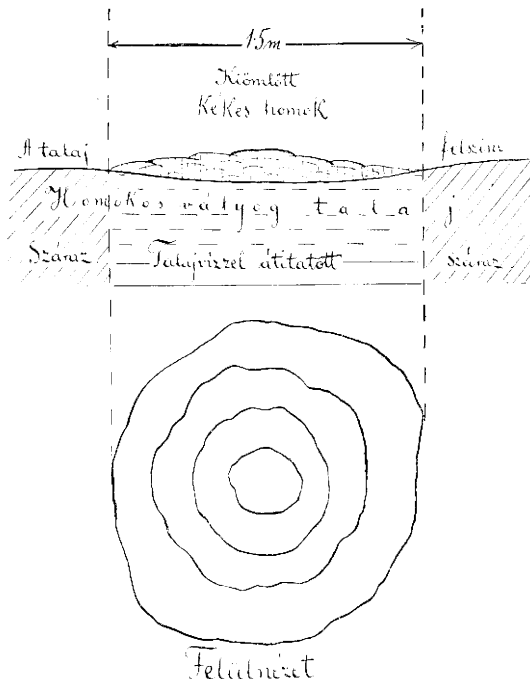 1.5m
Kiömlött
Kékes homok
A talaj felszín
Homokos vályog talaj
Száraz Talajvízzel átitatott száraz
Felülnézet